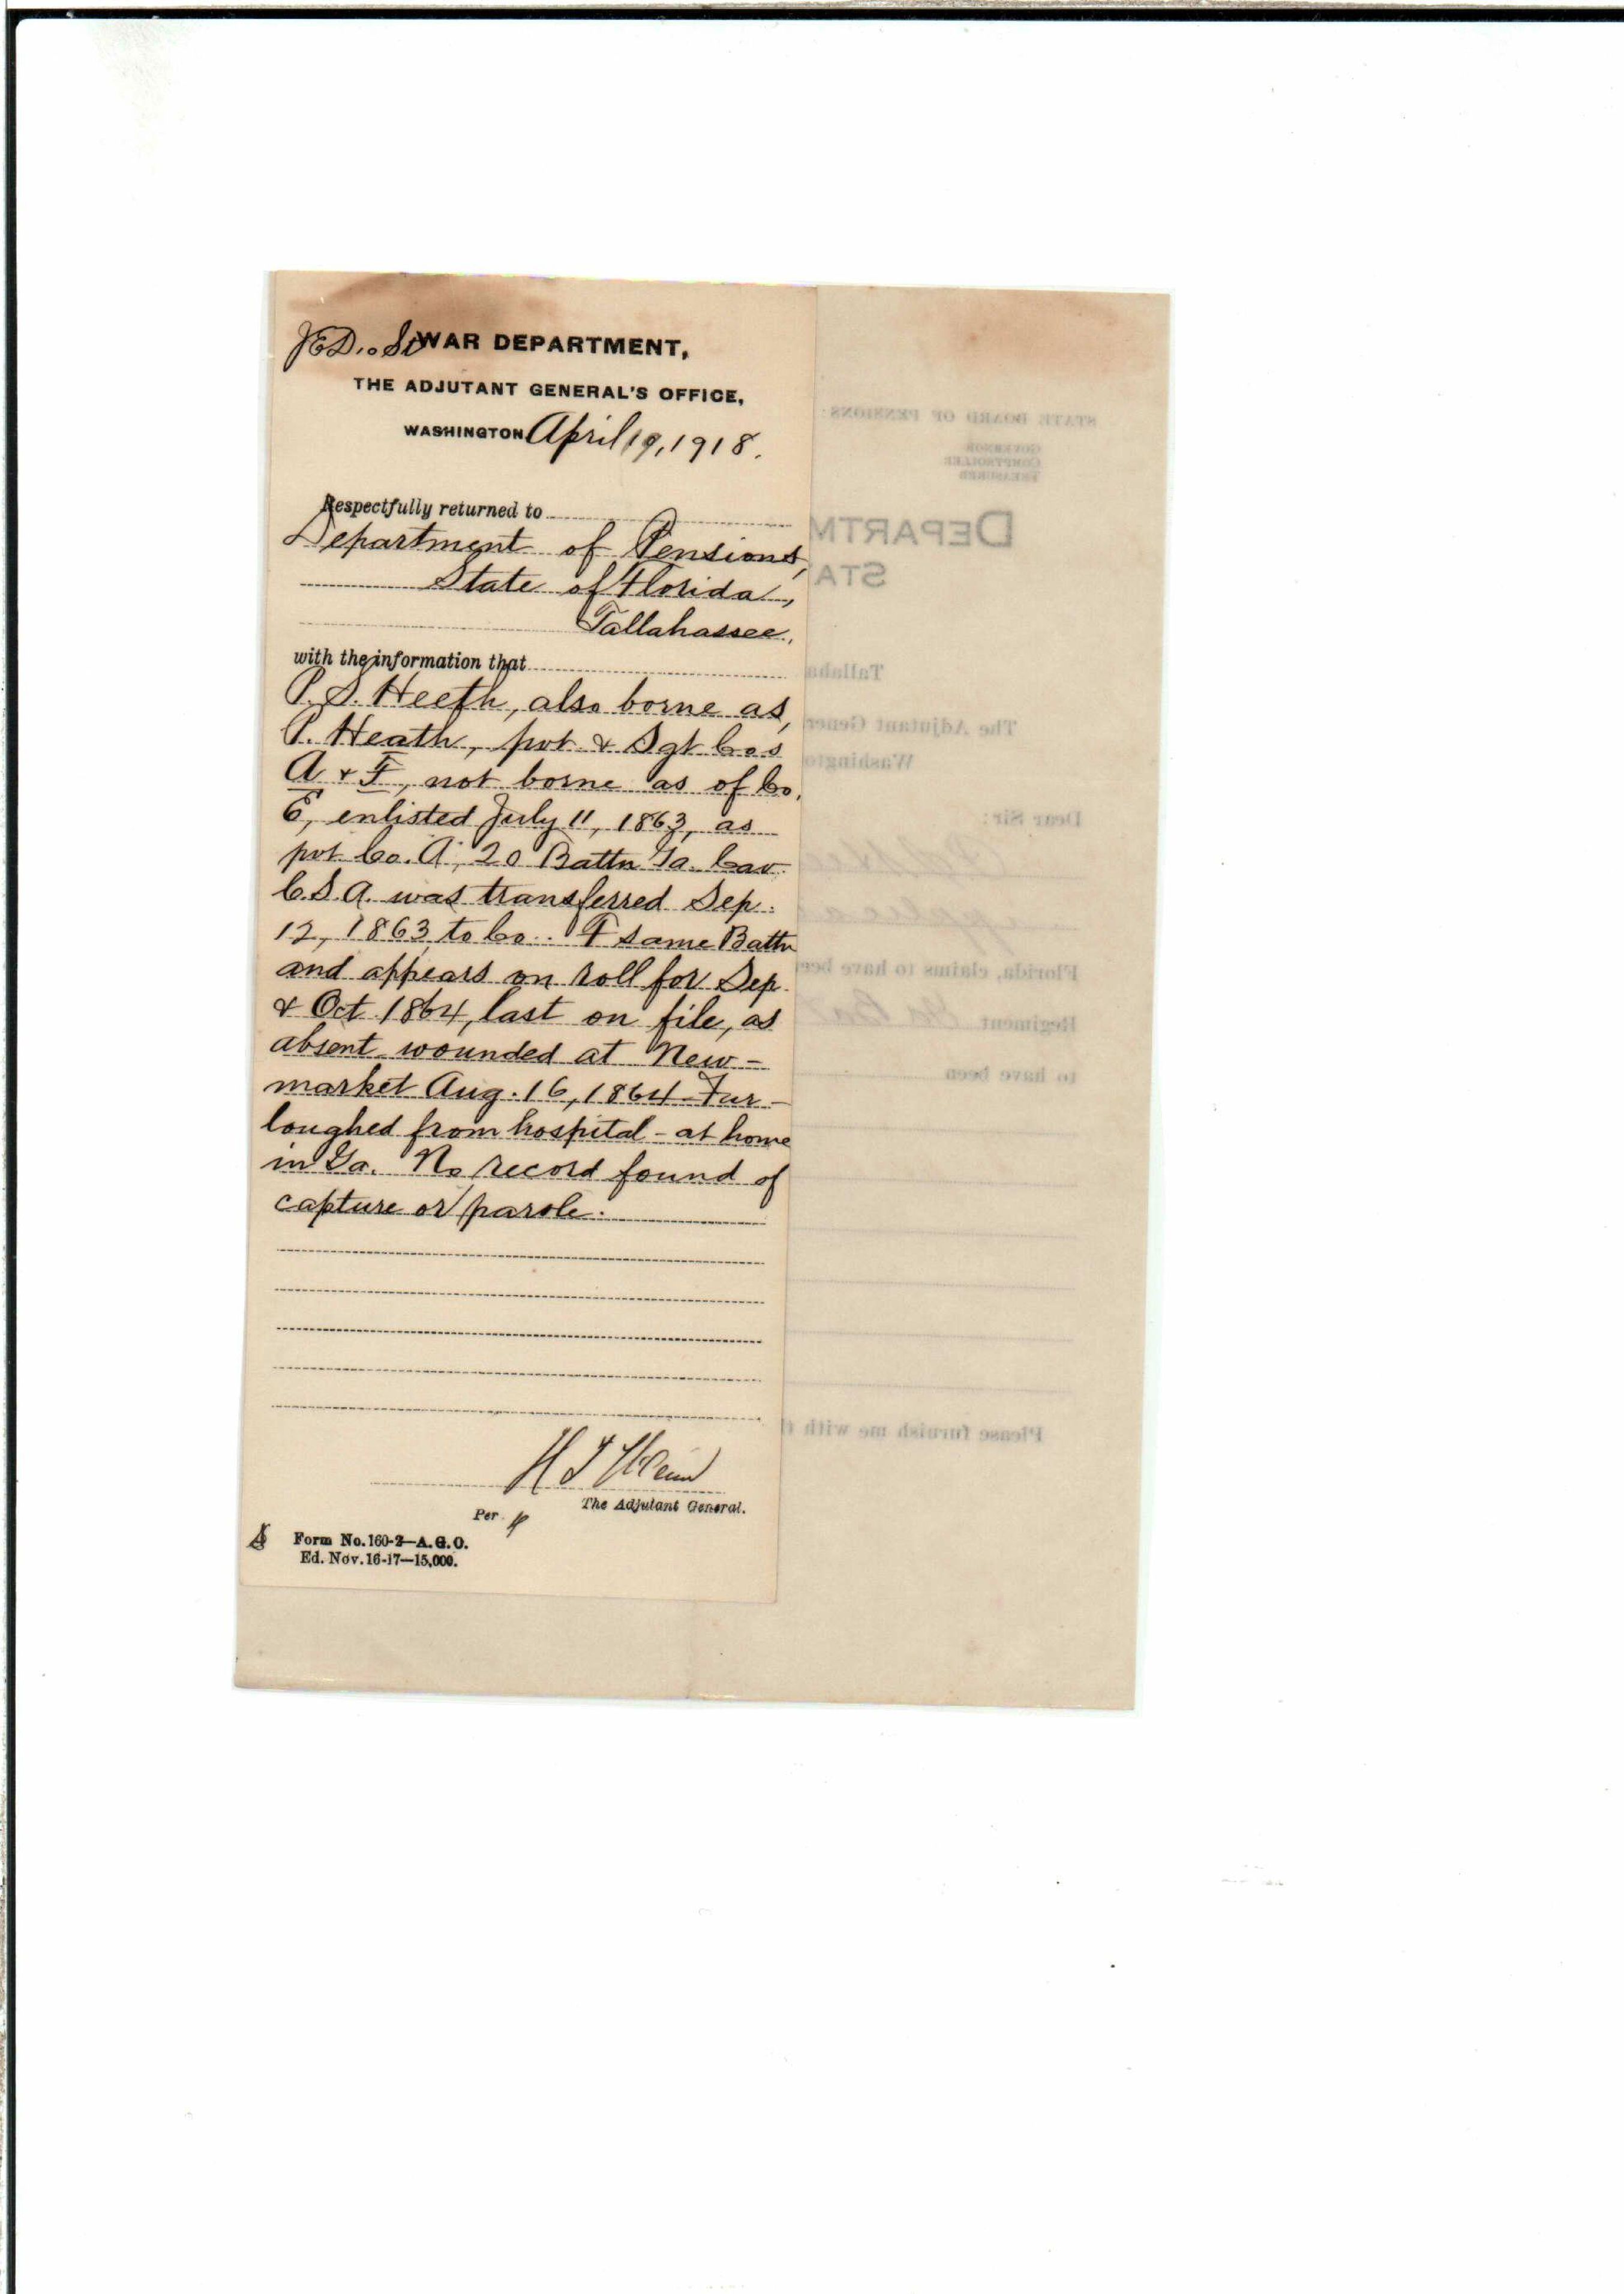 WAR DEPARTMENT,
THE ADJUTANT GENERAL'S OFFICE,
WASHINGTON April 19, 1918.
Respectfully returned to
Department of Pensions,
State of Florida,
Tallahassee,
with the information that
P. S. Heeth, also borne as,
P. Heath, pvt & Sgt Co's
A & F, not borne as of Co.
E, enlisted July 11, 1863, as
pvt Co. A, 20 Battn Ga. Cav.
C.S.A. was transferred Sep.
12, 1863 to Co. F same Battn
and appears on roll for Sep.
& Oct 1864, last on file, as
absent wounded at New-
market Aug. 16, 1864 Fur-
loughed from hospital - at home
in Ga. No record found of
capture or parole.
The Adjutant General.
Per
Form No. 160-2—A.G.O.
Ed. Nov. 16-17—15,000.
STATE BOARD OF PENSIONS:
GOVERNOR
COMPTROLLER
TREASURER
DEPARTM
STA
Tallaha
The Adjutant Gener
Washingto
Dear Sir:
Florida, claims to have bee
Regiment Ga Bat
to have been
Please furnish me with t